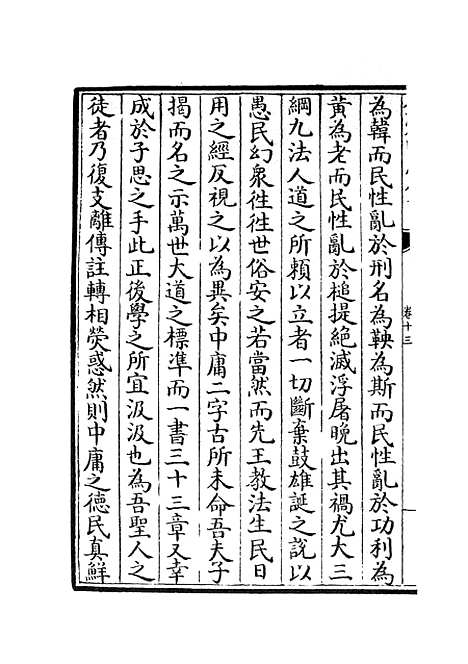 為韓而民性亂於刑名為鞅為斯而民性亂於功利為
黃為老而民性亂於槌提絕滅浮屠晚出其禍尤大三
綱九法人道之所賴以立者一切斷棄鼓雄誕之說以
愚民幻衆徃徃世俗安之若當然而先王教法生民日
用之經反視之以為異矣中庸二字古所未命吾夫子
揭而名之示萬世大道之標凖而一書三十三章又幸
成於子思之手此正後學之所宜汲汲也為吾聖人之
徒者乃復支離傳註轉相熒惑然則中庸之德民真鮮
卷十三